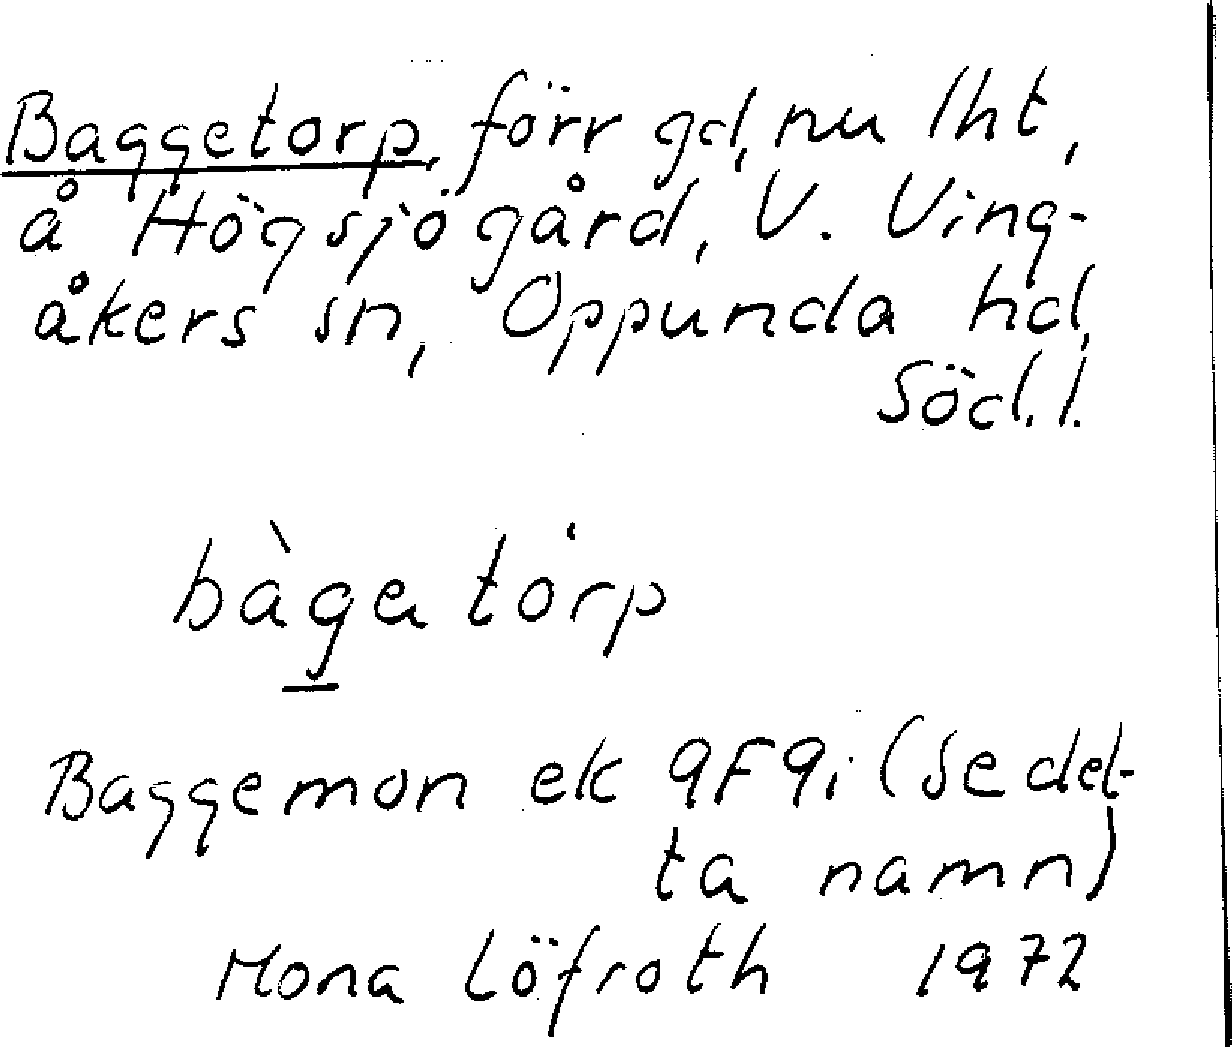 Baggetorp, förr gd, nu lht,
å Högsjö gård, V. Ving-
åkers sn, Oppunda hd,
Söd.l.
bàga tòrp
Baggemon ek 9F9i (se det-
ta namn)
Mona Löfroth 1972